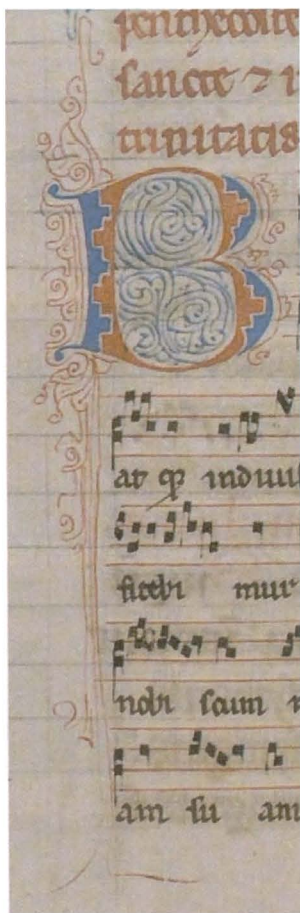 penthecoste
sancte ⁊ i
trinitatis
B
at qꝫ indiui
fitebi mur
nobi scum
am su am